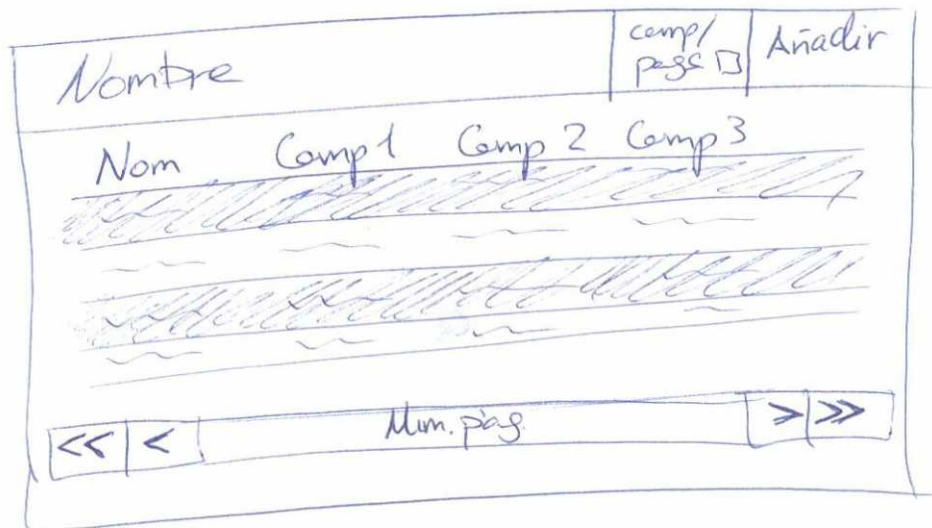 Nombre
camp/
page
Añadir
Nom Camp 1 Camp 2 Camp 3
<< < Num. pág. > >>